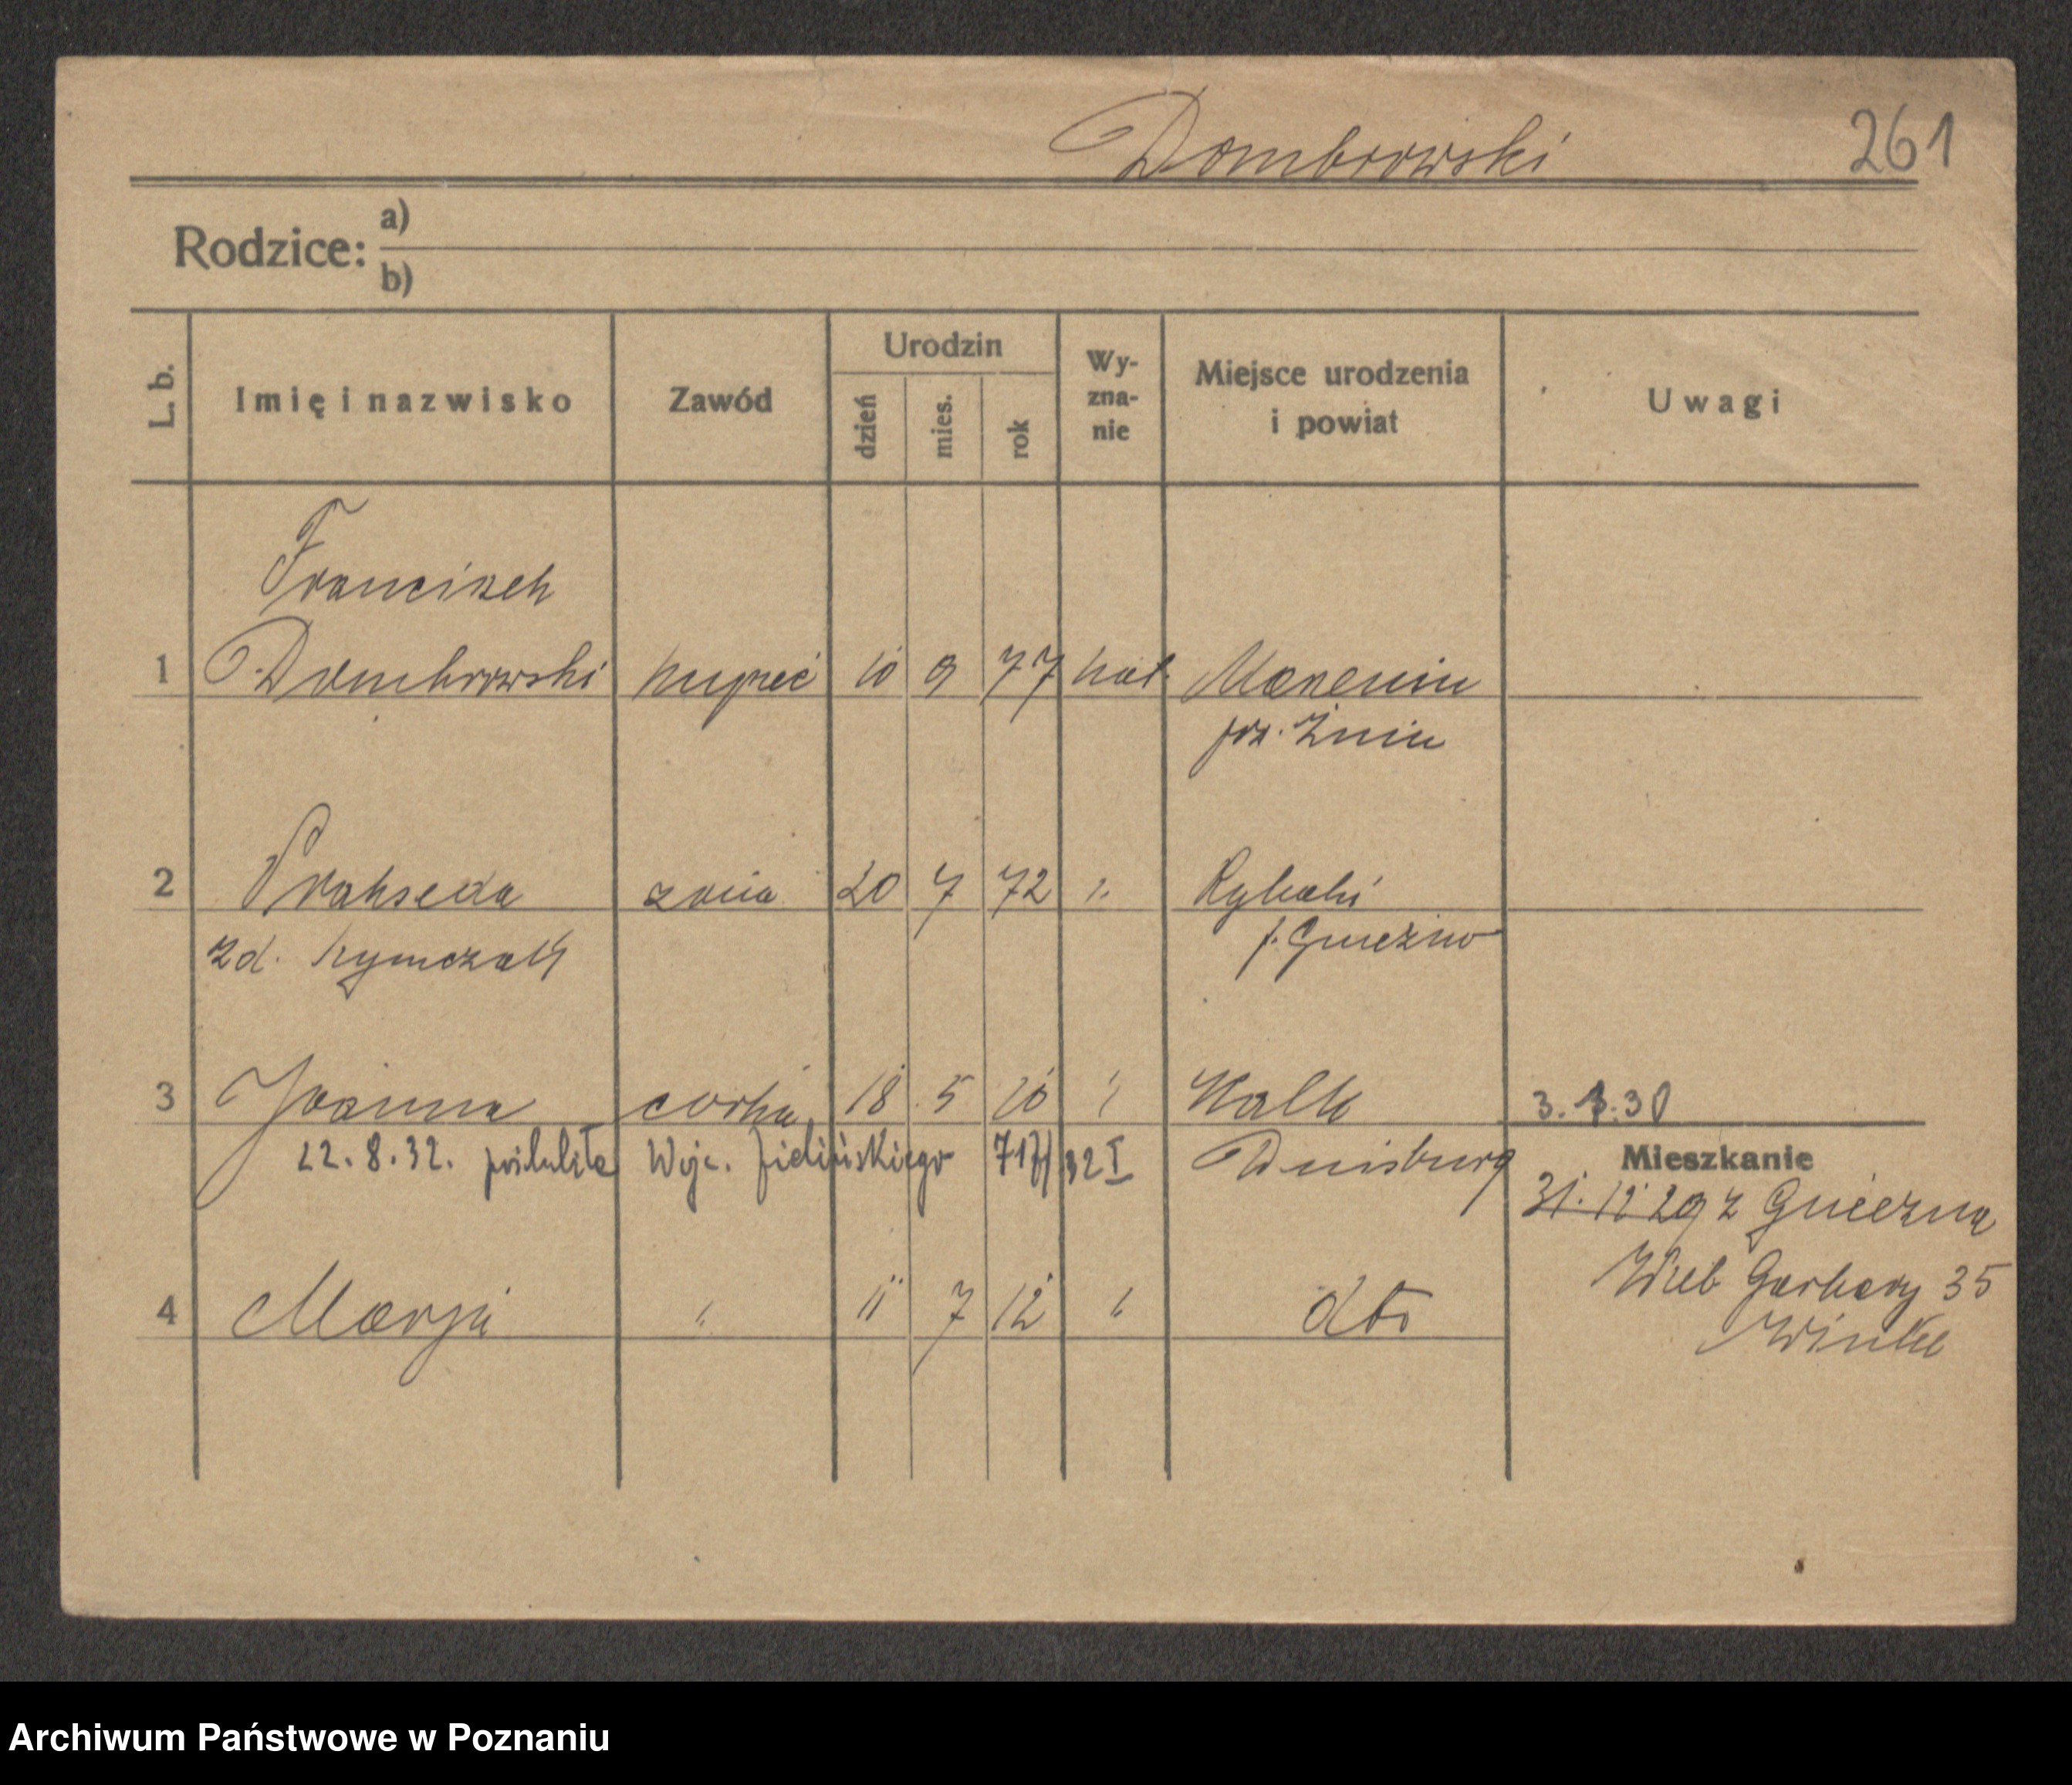 Dombrowski 261
Rodzice: a)
b)
L. b. Imię i nazwisko Zawód Urodzin dzień mies. rok Wy-zna-nie Miejsce urodzenia i powiat Uwagi
Franciszek
1 Dombrowski kupiec 10 9 77 kat.
pw. Żnin
2 Prakseda żona 20 7 72 " Rybaki
zd. p. Gniezno
3 Joanna córka 18 5 10 " 3. 30
22. 8. 32. poślubiła Wojc. Zielińskiego 32 I Duisburg Mieszkanie
31. 12 29 z Gniezna
Garbary 35
4 Marja " 11 7 12 " dto
Archiwum Państwowe w Poznaniu